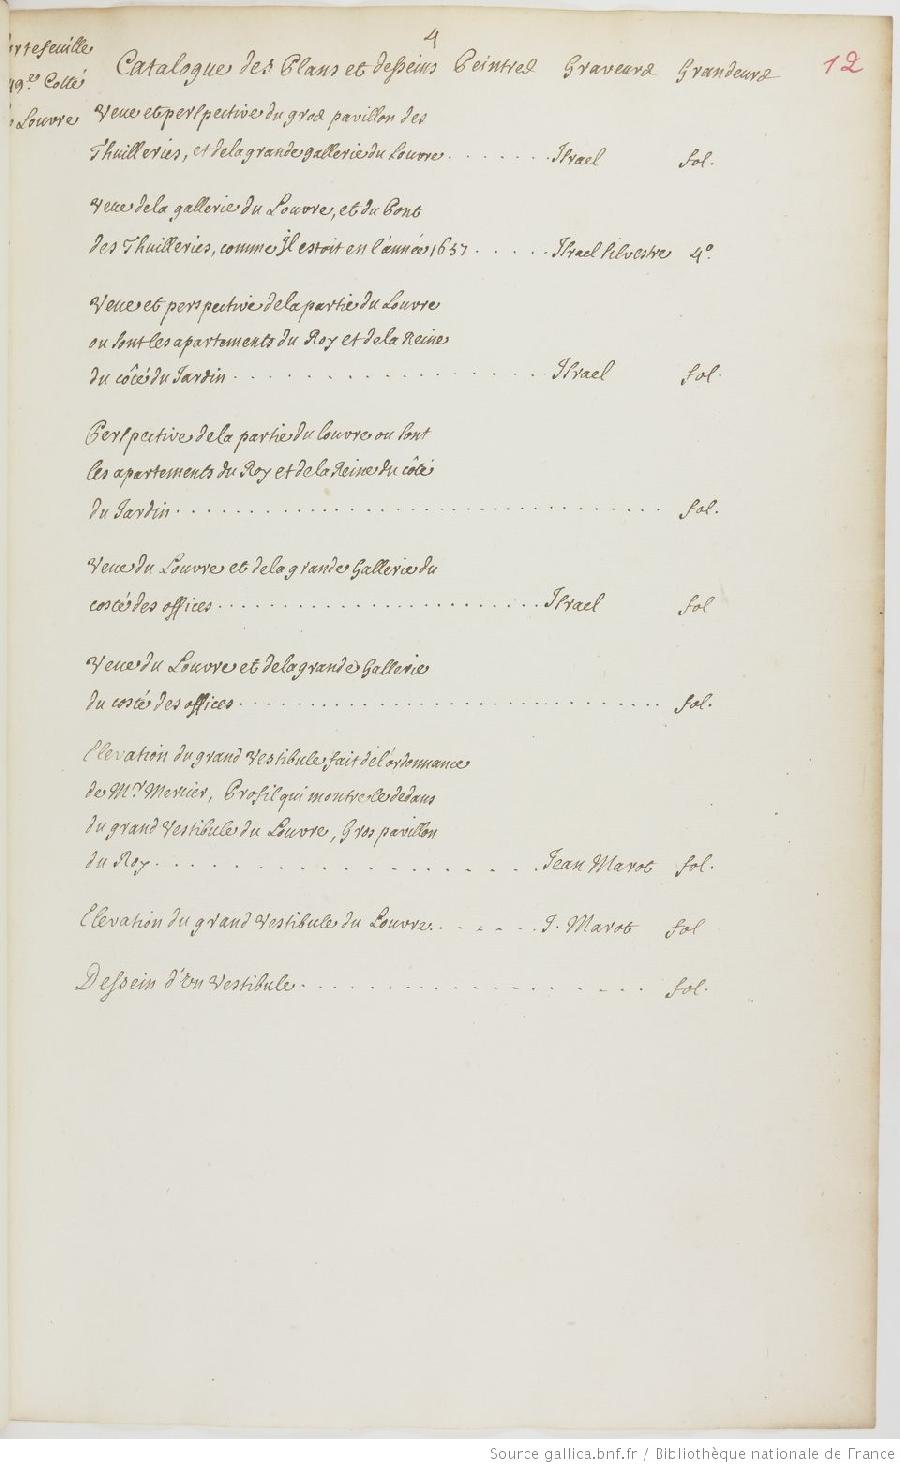 4
Portefeuille Catalogue des Plans et desseins Peintres Graveurs Grandeurs 12
Cotté
Louvre
Veue et perspective du gros pavillon des
Thuilleries, et de la grande gallerie du Louvre . . . . . . . Israel fol.
Veue de la gallerie du Louvre, et du Pont
des Thuilleries, comme Jl estoit en l'année 1657 . . . . . Israel silvestre 4º.
Veue et perspective de la partie du Louvre
ou sont les apartements du Roy et de la Reine
du côté du Jardin . . . . . . . . . . . . . . . . Israel fol.
Perspective de la partie du louvre ou sont
les apartements du Roy et de la Reine du côté
du Jardin . . . . . . . . . . . . . . . . . . . . . . . . fol.
Veue du Louvre et de la grande Gallerie du
costé des offices . . . . . . . . . . . . . . . . . . Israel fol
Veue du Louvre et de la grande Gallerie
du costé des offices . . . . . . . . . . . . . . . . . . . . . . fol.
Elevation du grand Vestibule, fait de l'ordonnance
de Mr. Mercier, Profil qui montre le dedans
du grand Vestibule du Louvre, Gros pavillon
du Roy . . . . . . . . . . . . . . Jean Marot fol.
Elevation du grand Vestibule du Louvre . . . . . . J. Marot fol
Dessein d'Un Vestibule . . . . . . . . . . . . . . . . . . fol.
Source gallica.bnf.fr / Bibliothèque nationale de France